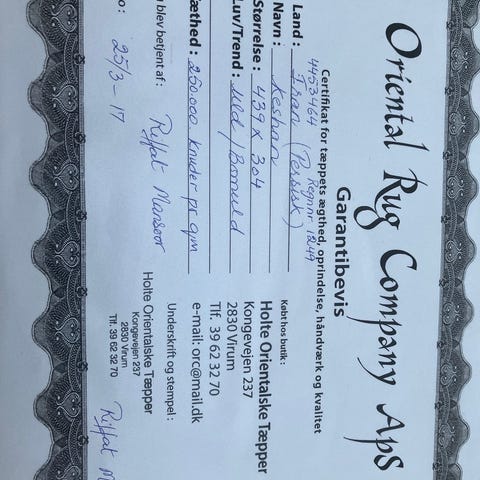 Oriental Rug Company ApS
Garantibevis
Certifikat for tæppets ægthed, oprindelse, håndværk og kvalitet
4453464 Regnr 1249
Land : Iran (Persisk)
Navn : Keshan
Størrelse : 439 x 304
Luv/Trend : Uld / Bomuld
æthed : 260.000 Knuder pr qm
u blev betjent af : Riffat Mansoor
o : 25/3-17
Købt hos butik :
Holte Orientalske Tæpper
Kongevejen 237
2830 Virum
Tlf. 39 62 32 70
e-mail: orc@mail.dk
Underskrift og stempel :
Holte Orientalske Tæpper
Kongevejen 237
2830 Virum
Tlf. 39 62 32 70
Riffat M